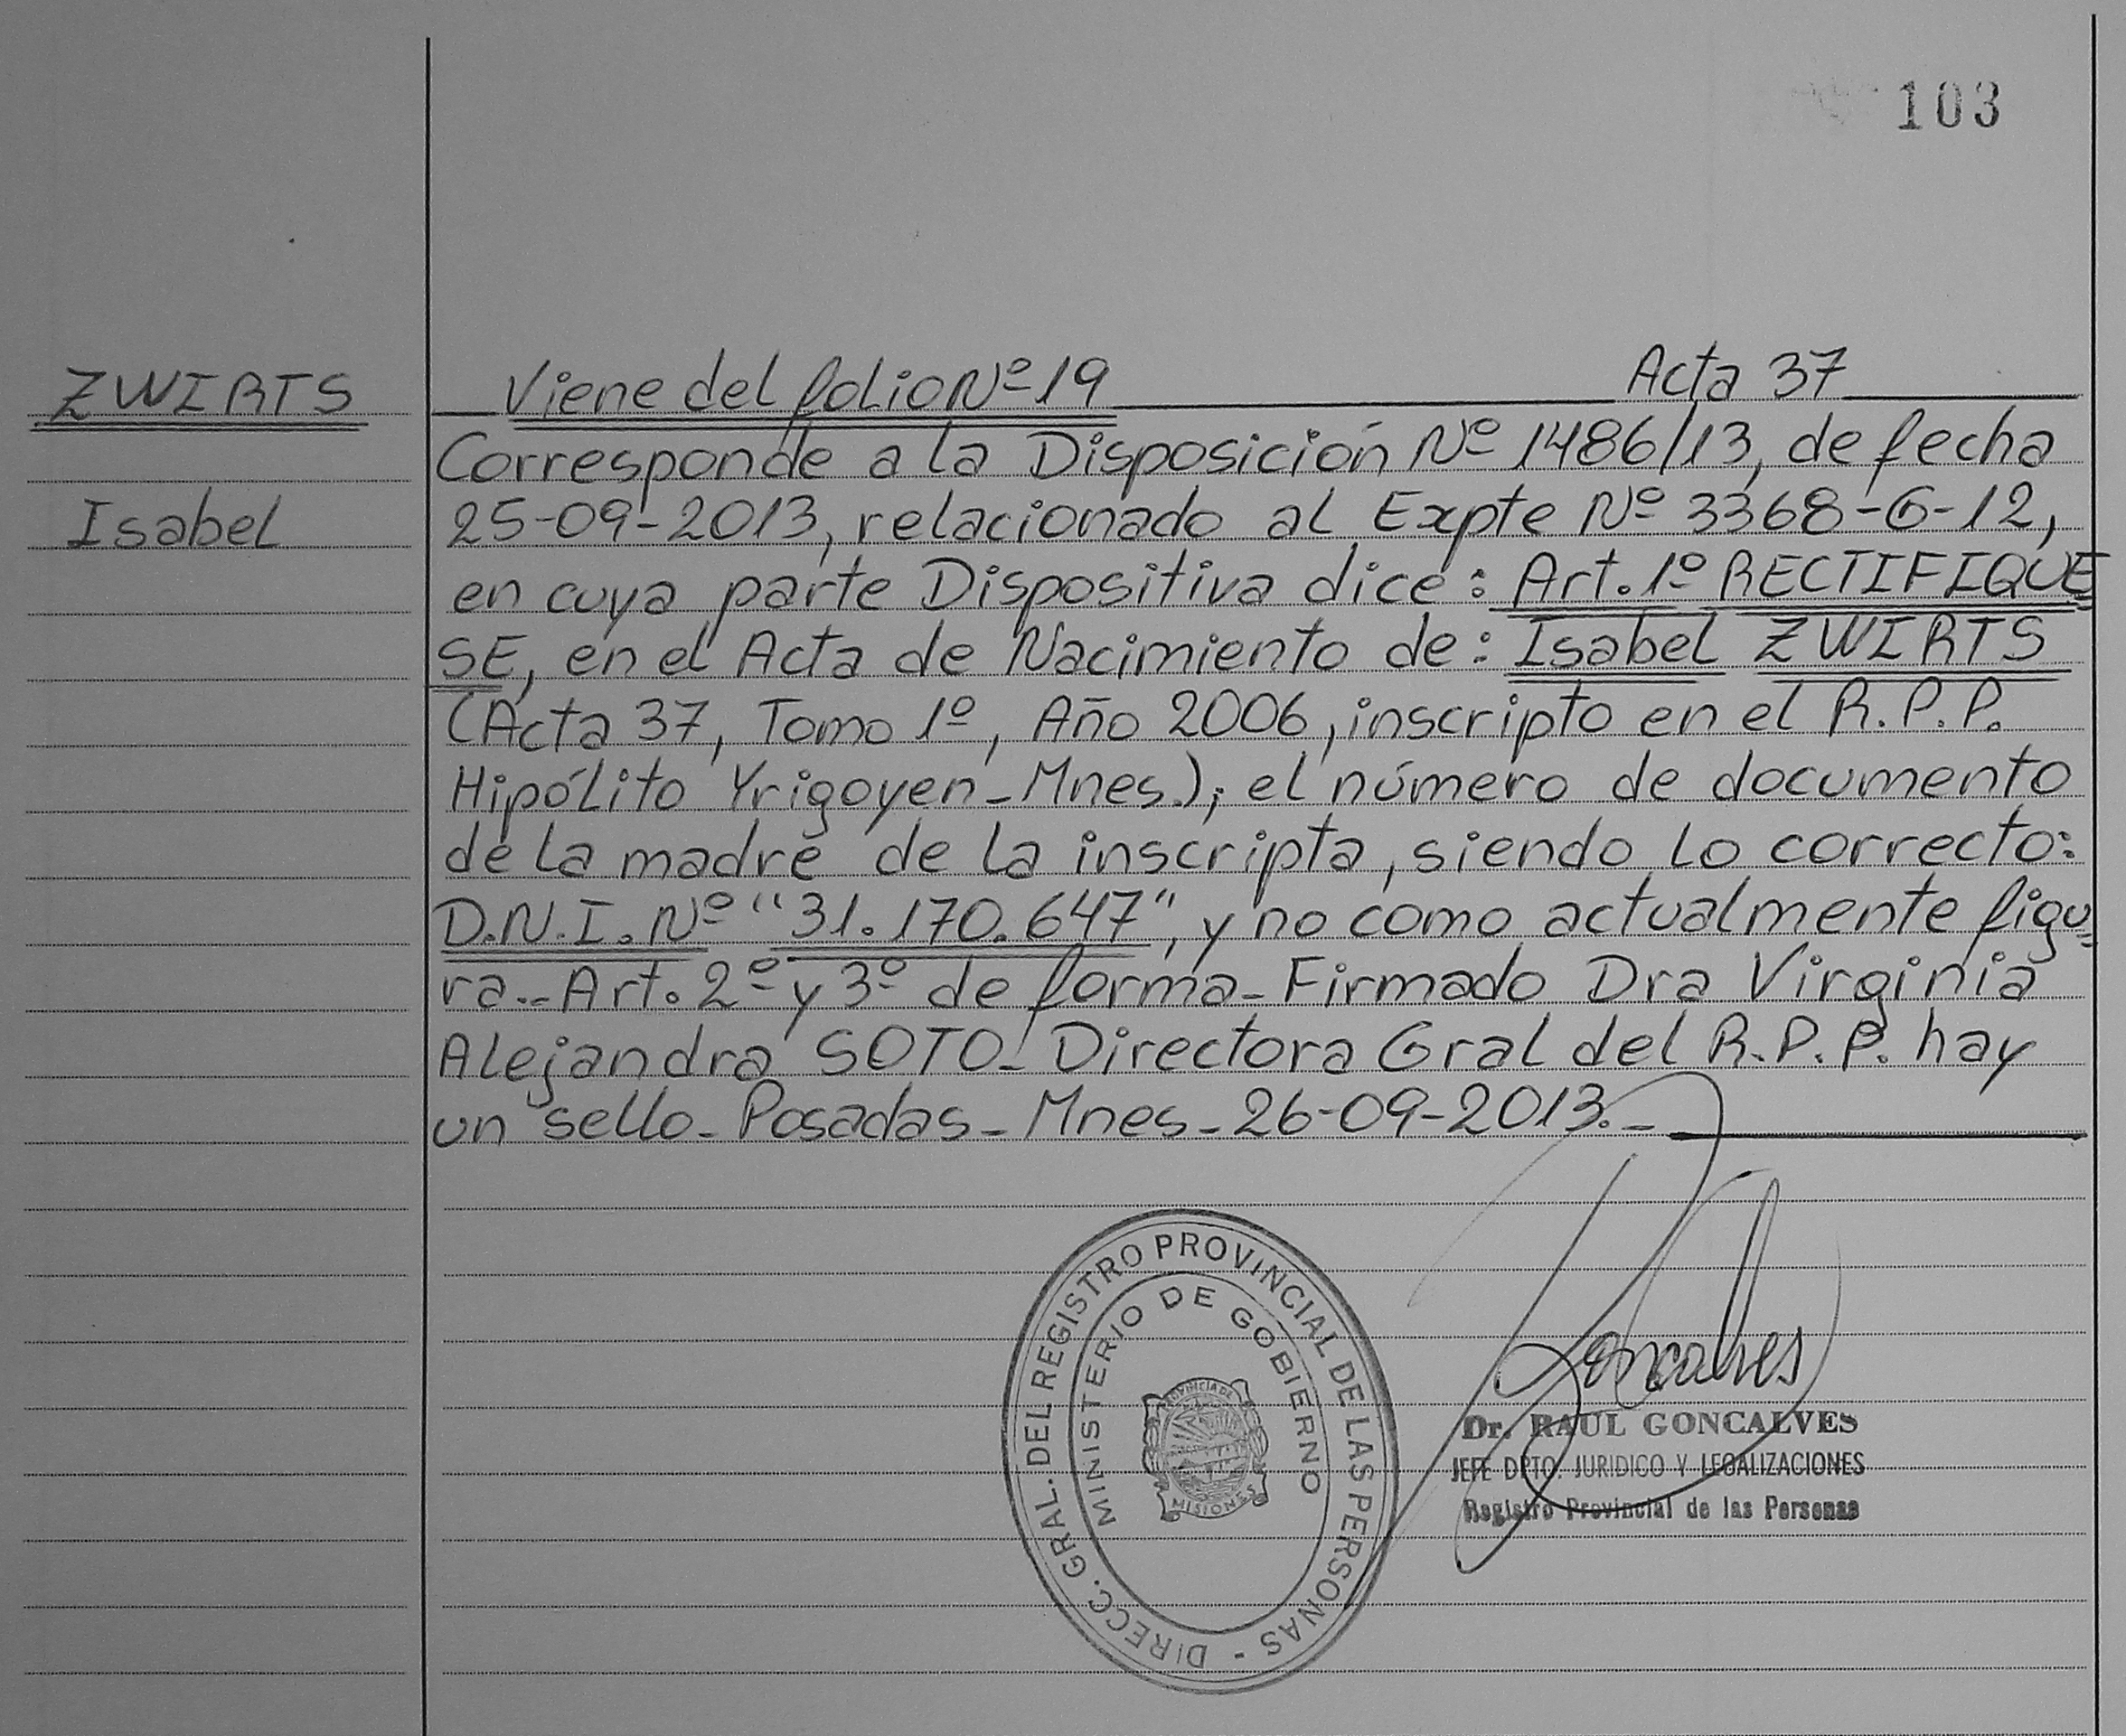 103
ZWIRTS
Isabel
Viene del folio Nº 19 Acta 37
Corresponde a la Disposición Nº 1486/13, de fecha
25-09-2013, relacionado al Expte Nº 3368-G-12,
en cuya parte Dispositiva dice: Art. 1º RECTIFIQUE
SE, en el Acta de Nacimiento de: Isabel ZWIRTS
(Acta 37, Tomo 1º, Año 2006, inscripto en el R.P.P.
Hipólito Yrigoyen - Mnes.); el número de documento
de la madre de la inscripta, siendo lo correcto:
D.N.I. Nº "31.170.647", y no como actualmente figu=
ra.- Art. 2º y 3º de forma - Firmado Dra Virginia
Alejandra SOTO - Directora Gral del R.P.P. hay
un sello - Posadas - Mnes - 26-09-2013.-
DIRECC. GRAL. DEL REGISTRO PROVINCIAL DE LAS PERSONAS -
MINISTERIO DE GOBIERNO
PROVINCIA DE
MISIONES
Goncalves
Dr. RAUL GONCALVES
JEFE DPTO. JURIDICO Y LEGALIZACIONES
Registro Provincial de las Personas